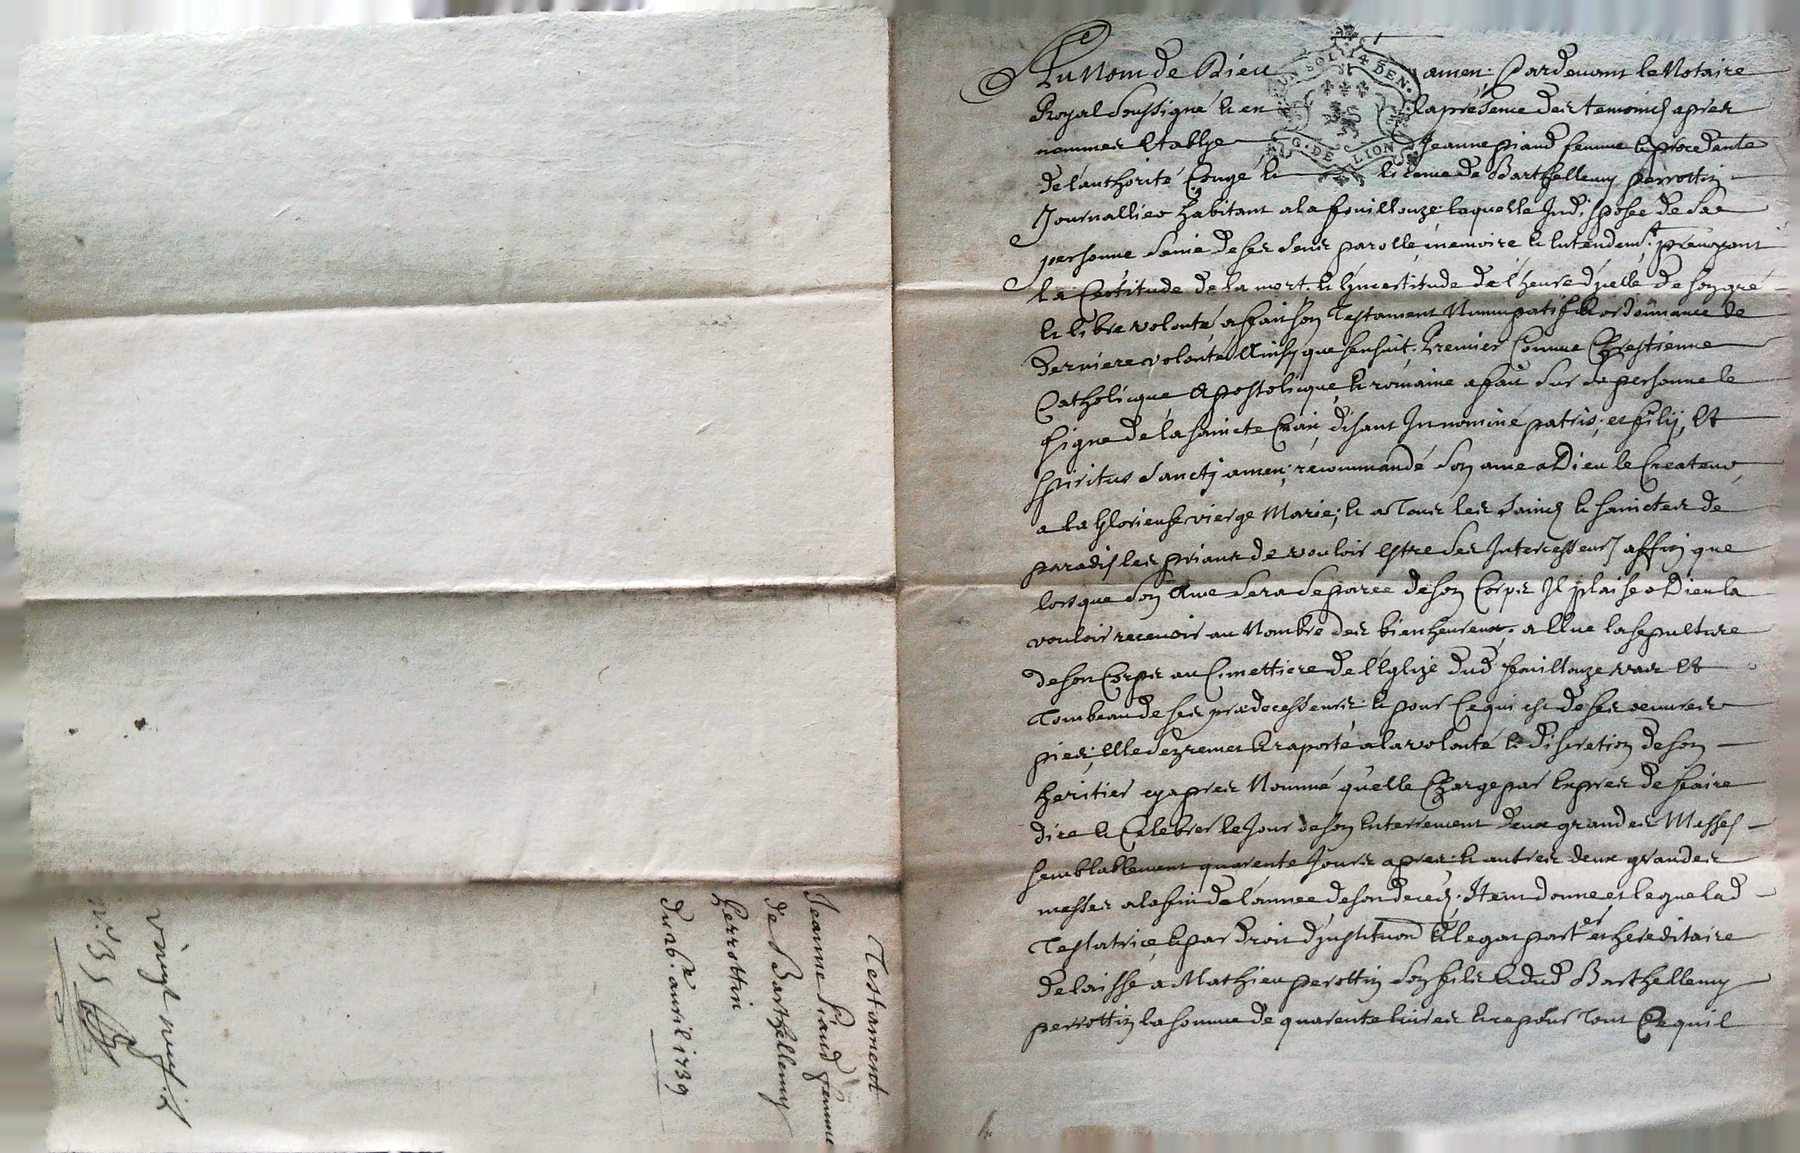 Au Nom de Dieu amen; Pardevant le Notaire
Royal soussigné & en la présence des temoins apres
nommes establye Jeanne piaud femme & procedante
de l'authorité Congé & licence de Barthellemy perrottin
Journallier habitant a la fouillouze laquelle Indisposée de sa
personne saine de ses sens parolle, memoire & Entendemt. prevoyant
la Certitude de la mort & l'incertitude de l'heure d'ycelle de son gré
& libre volonté a fait son Testament Nuncupatif & ordonnance de
derniere volonté Ainsy que sensuit. Premier Comme Chrestienne
Catholicque Apostolicque & romaine a fait sur sa personne le
signe de la saincte Croix, disant In nomine patris, et filij, Et
spiritus sancti amen; recommandé son ame a Dieu le Createur,
a la Glorieuse vierge Marie; & a Tous les saincts & sainctes de
paradis les priant de vouloir estre ses Intercesseurs affin que
lorsque son Ame sera separée de son Corps Il plaise a Dieu la
vouloir recevoir au Nombre des bienheureux. a Elue la sepulture
de son Corps au Cimettiere de l'Eglize dud fouillouze vas Et
Tombeau de ses prædecesseurs. & pour Ce qui est de ses œuvres
pies, Elle s'ez remet & raporté a la volonté & discretion de son
heritier cy apres Nommé qu'elle Charge par Expres de faire
dire & Celebrer le Jour de son Enterrement deux grandes Messes
semblablement quarente Jours apres & autres deux grandes
messes a la fin de l'année de son deceds. Item donne et legue lad
Testatrice, & par droit d'institution & legat part.er et hereditaire
delaisse a Mathieu perottin son fils & dud Barthellemy
perrottin la somme de quarente livres & ce pour Tout Ce quil
Testament
Jeanne Piaud femme
de Barthellemy
Perrottin
du 26.e avril 1739
vingt neuf
n.° 35
UN SOL 4 DEN.
G. DE LION